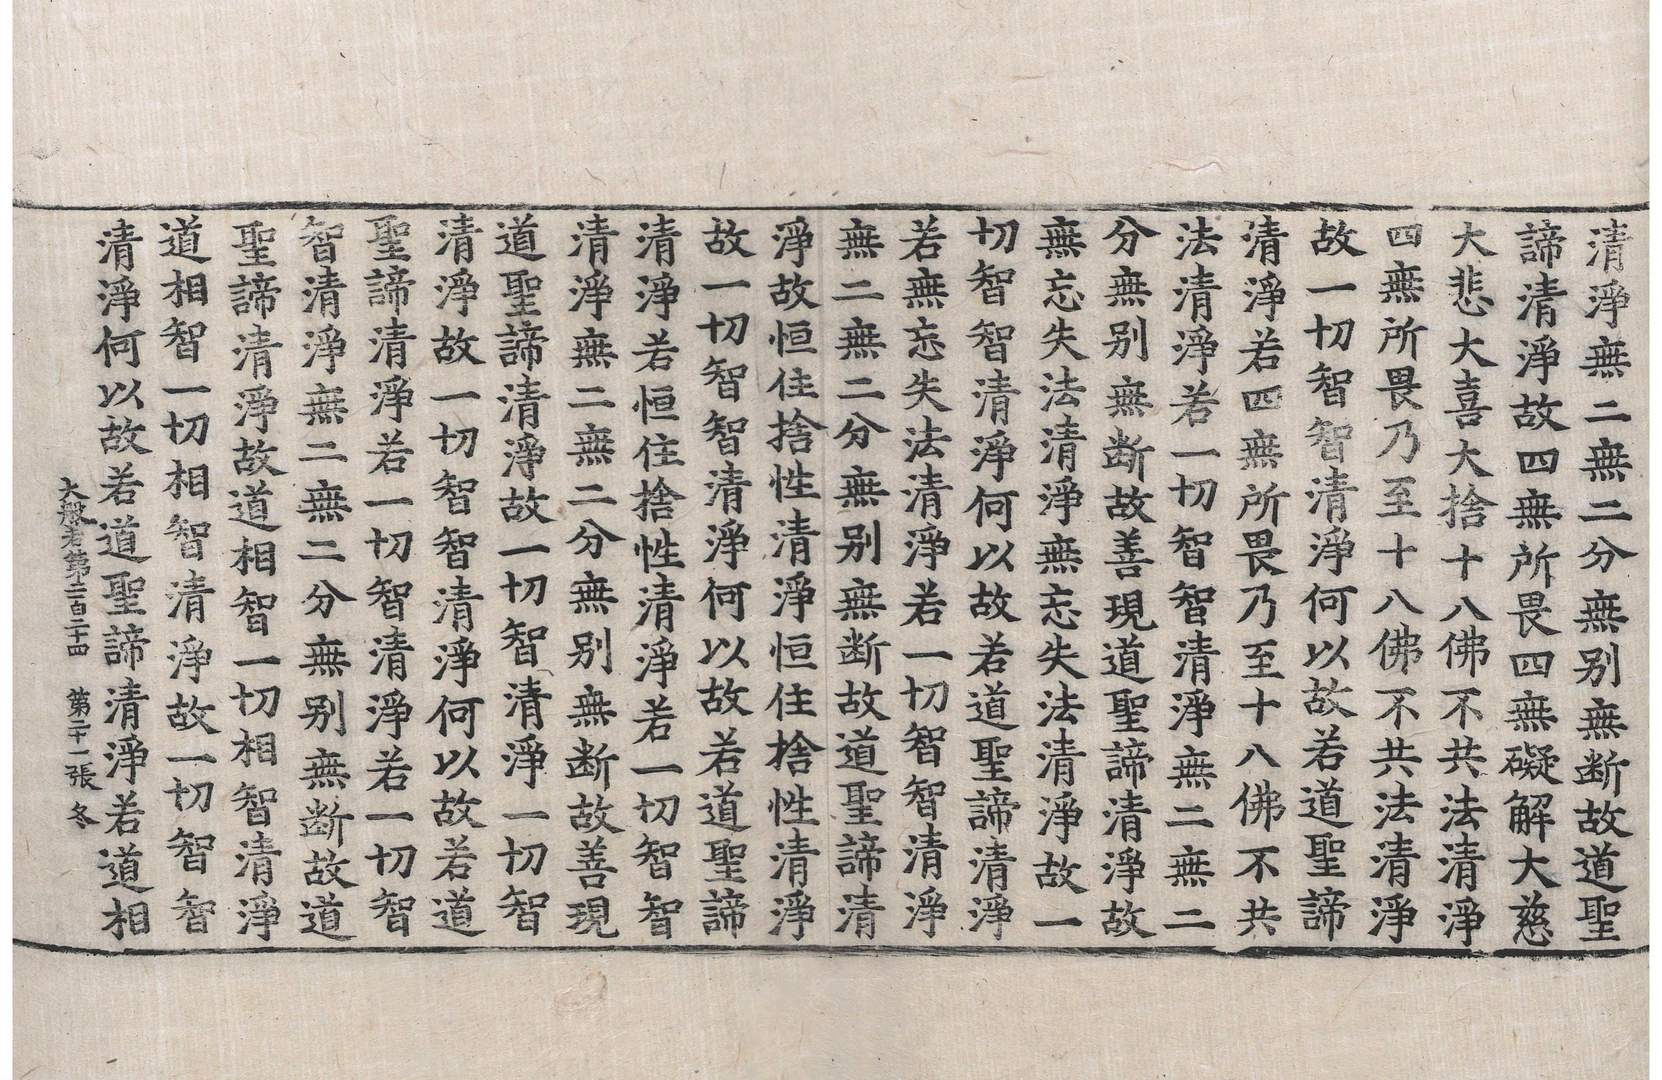 清淨無二無二分無別無斷故道聖
諦清淨故四無所畏四無礙解大慈
大悲大喜大捨十八佛不共法清淨
四無所畏乃至十八佛不共法清淨
故一切智智清淨何以故若道聖諦
清淨若四無所畏乃至十八佛不共
法清淨若一切智智清淨無二無二
分無別無斷故善現道聖諦清淨故
無忘失法清淨無忘失法清淨故一
切智智清淨何以故若道聖諦清淨
若無忘失法清淨若一切智智清淨
無二無二分無別無斷故道聖諦清
淨故恒住捨性清淨恒住捨性清淨
故一切智智清淨何以故若道聖諦
清淨若恒住捨性清淨若一切智智
清淨無二無二分無別無斷故善現
道聖諦清淨故一切智清淨一切智
清淨故一切智智清淨何以故若道
聖諦清淨若一切智清淨若一切智
智清淨無二無二分無別無斷故道
聖諦清淨故道相智一切相智清淨
道相智一切相智清淨故一切智智
清淨何以故若道聖諦清淨若道相
大般若第二百二十四 第二十一張 冬